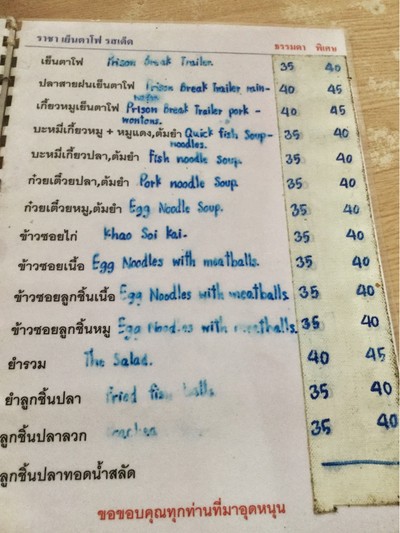 ราชา เย็นตาโฟ รสเด็ด ธรรมดา พิเศษ
เย็นตาโฟ Prison Break Trailer. 35 40
ปลาสายฝนเย็นตาโฟ Prison Break Trailer rain- 40 45
เกี้ยวหมูเย็นตาโฟ Prison Break Trailer pork - 40 45
wontons.
บะหมี่เกี้ยวหมู + หมูแดง,ต้มยำ Quick fish Soup- 35 40
noodles.
บะหมี่เกี้ยวปลา,ต้มยำ Fish noodle Soup. 35 40
ก๋วยเตี๋ยวปลา,ต้มยำ Pork noodle Soup. 35 40
ก๋วยเตี๋ยวหมู,ต้มยำ Egg Noodle Soup. 35 40
ข้าวซอยไก่ Khao Soi Kai. 35 40
ข้าวซอยเนื้อ Egg Noodles with meatballs. 35 40
ข้าวซอยลูกชิ้นเนื้อ Egg Noodles with meatballs. 35 40
ข้าวซอยลูกชิ้นหมู Egg Noodles with meatballs. 35 40
ยำรวม The Salad. 40 45
ยำลูกชิ้นปลา Fried fish balls 35 40
ลูกชิ้นปลาลวก 35 40
ลูกชิ้นปลาทอดน้ำสลัด
ขอขอบคุณทุกท่านที่มาอุดหนุน